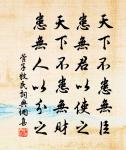 天下不患無臣
患無君以使之
天下不患無財
患無人以分之
管子牧民詞典網